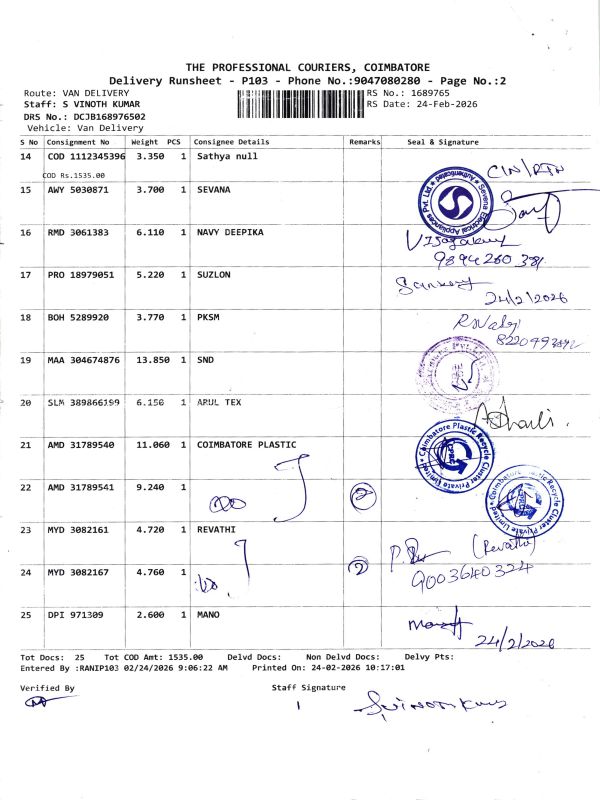 THE PROFESSIONAL COURIERS, COIMBATORE
Delivery Runsheet - P103 - Phone No.:9047080280 - Page No.:2
Route: VAN DELIVERY RS No.: 1689765
Staff: S VINOTH KUMAR RS Date: 24-Feb-2026
DRS No.: DCJB168976502
Vehicle: Van Delivery
S No Consignment No Weight PCS Consignee Details Remarks Seal & Signature
14 COD 1112345396 3.350 1 Sathya null
COD Rs.1535.00
CIN/RTN
15 AWY 5030871 3.700 1 SEVANA
Sevana Electrical Appliances Pvt. Ltd.
16 RMD 3061383 6.110 1 NAVY DEEPIKA
9894260381
17 PRO 18979051 5.220 1 SUZLON
24/2/2026
18 BOH 5289920 3.770 1 PKSM
19 MAA 304674876 13.850 1 SND
20 SLM 389866199 6.150 1 ARUL TEX
21 AMD 31789540 11.060 1 COIMBATORE PLASTIC
Coimbatore Plastic Recycle Cluster Private Limited
22 AMD 31789541 9.240 1 2
Coimbatore Plastic Recycle Cluster Private Limited
23 MYD 3082161 4.720 1 REVATHI
(Revathi)
24 MYD 3082167 4.760 1 2
9003640324
25 DPI 971309 2.600 1 MANO
24/2/2026
Tot Docs: 25 Tot COD Amt: 1535.00 Delvd Docs: Non Delvd Docs: Delvy Pts:
Entered By :RANIP103 02/24/2026 9:06:22 AM Printed On: 24-02-2026 10:17:01
Verified By Staff Signature